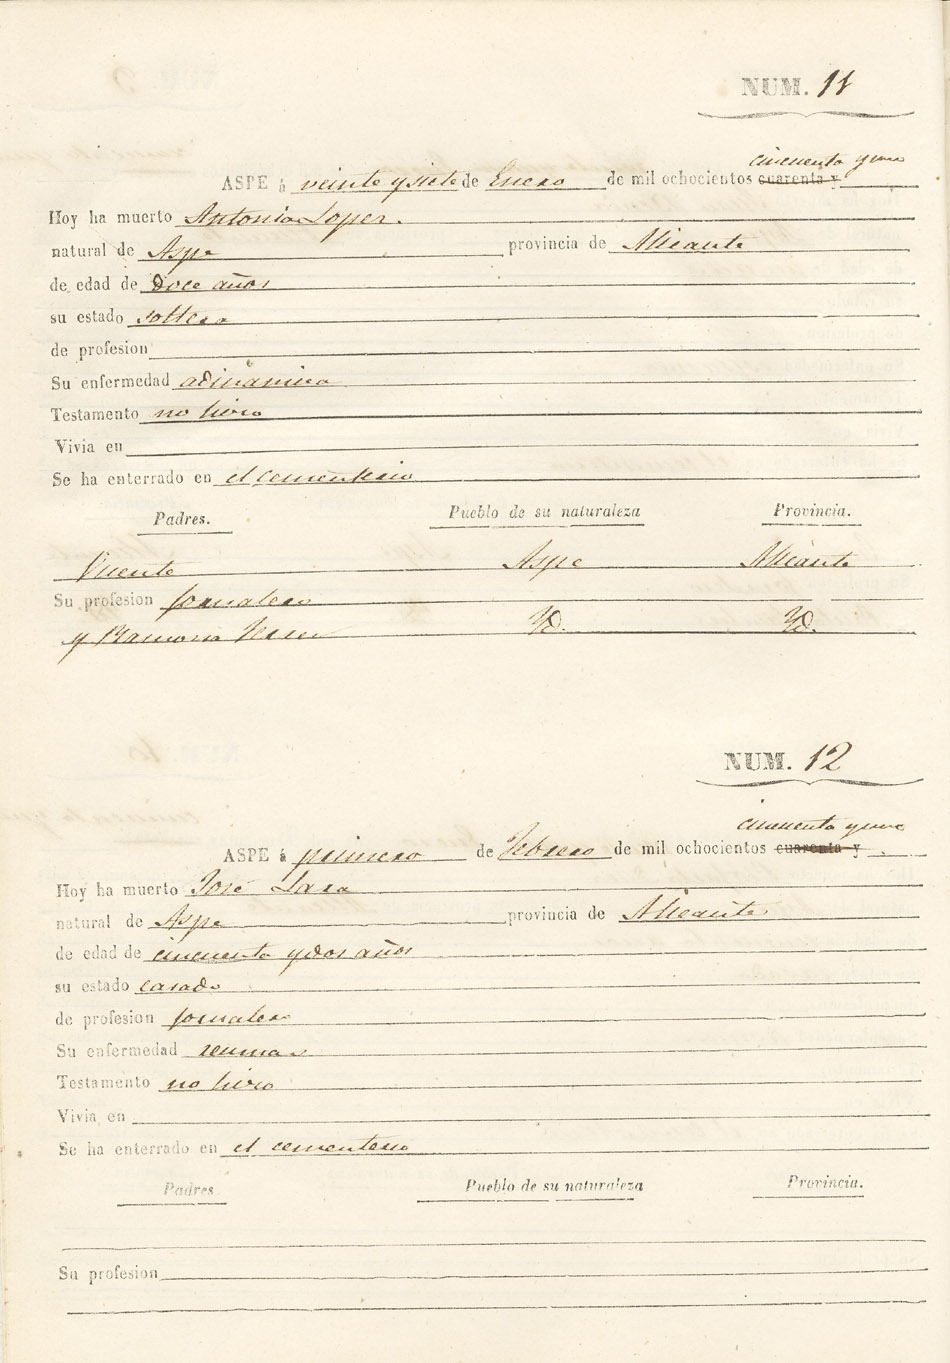 NUM. 11
cincuenta y uno
ASPE á veinte y siete de Enero de mil ochocientos cuarenta y
Hoy ha muerto Antonia Lopez.
natural de Aspe provincia de Alicante
de edad de doce años
su estado soltera
de profesion
Su enfermedad adinamica
Testamento no hizo
Vivia en
Se ha enterrado en el cementerio
Padres. Pueblo de su naturaleza Provincia.
Vicente Aspe Alicante
Su profesion jornalero
y Ramona Yd. Yd.
NUM. 12
cincuenta y uno
ASPE á primero de Febrero de mil ochocientos cuarenta y
Hoy ha muerto José Lara
natural de Aspe provincia de Alicante
de edad de cincuenta y dos años
su estado casado
de profesion jornalero
Su enfermedad reuma
Testamento no hizo
Vivia en
Se ha enterrado en el cementerio
Padres. Pueblo de su naturaleza Provincia.
Su profesion